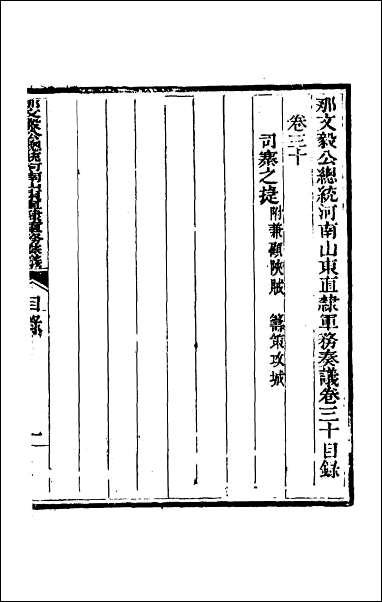 那文毅公總統河南山東直隸軍務奏議卷三十目錄
卷三十
司寨之捷附兼顧陝賊 籌策攻城
那文毅公總統河南山東直隸軍務奏議
目錄
一